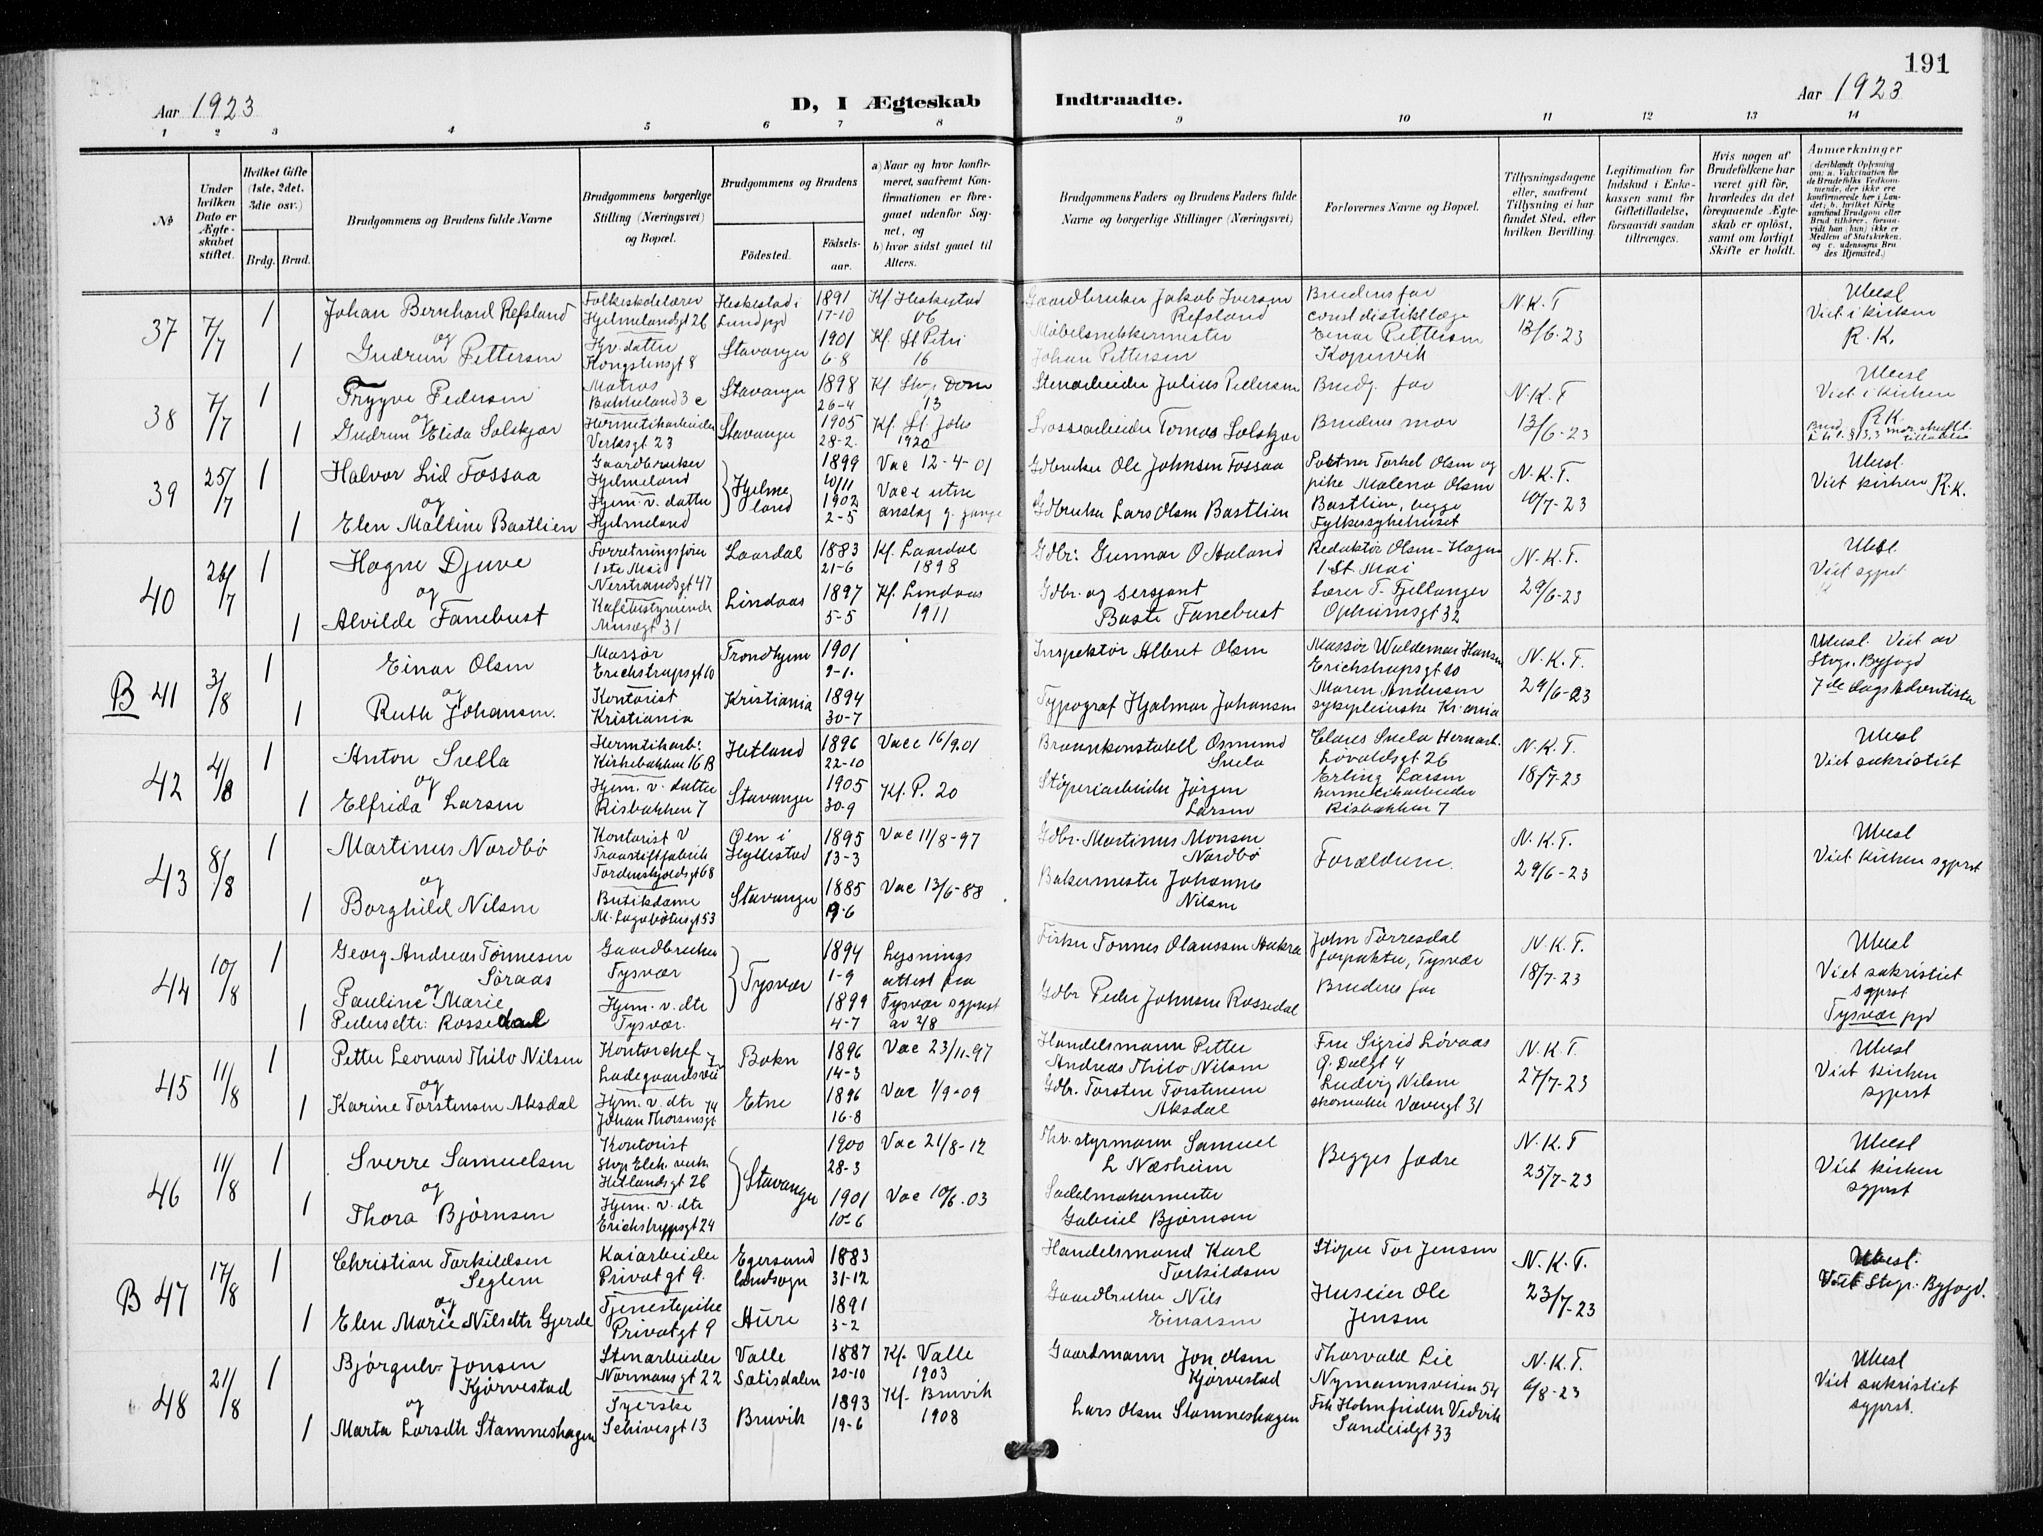 191
Aar 1923
D, I Ægteskab
Indtraadte.
Aar 1923
1 2 3 4 5 6 7 8 9 10 11 12 13 14
№
Under hvilken Dato er Ægteskabet stiftet.
Hvilket Gifte (1ste, 2det, 3die osv.)
Brdg. Brud.
Brudgommens og Brudens fulde Navne
Brudgommens borgerlige Stilling (Næringsvei) og Bopæl.
Brudgommens og Brudens
Födested.
Födselsaar.
a) Naar og hvor konfirmeret, saafremt Konfirmationen er foregaaet udenfor Sognet, og
b) hvor sidst gaaet til Alters.
Brudgommens Faders og Brudens Faders fulde Navne og borgerlige Stillinger (Næringsvei)
Forlovernes Navne og Bopæl.
Tillysningsdagene eller, saafremt Tillysning ei har fundet Sted, efter hvilken Bevilling.
Legitimation for Indskud i Enkekassen samt for Giftetilladelse, forsaavidt saadan tiltrænges.
Hvis nogen af Brudefolkene har været gift för, hvorledes da det foregaaende Ægteskab er oplöst, samt om lovligt Skifte er holdt.
Anmærkninger
37 7/7 1 Johan Bernhard Refsland
og
1 Gudrun Pettersen
Folkeskolelærer
Hjelmelandsgt 26
Hjv. datter
Kongstensgt 8
Heskestad i
Lund pgd
Stavanger
1891
17-10
1901
6-8
Kf. Heskestad
06
Kf. St Petri
16
Gaardbruker Jakob Iversen
Refsland
Møbelsnekkermester
Johan Pettersen
Brudens far
const distriktlæge
Einar Pettersen
Kopervik
N.K.T
13/6-23
Ubesl
Viet i kirken
R.K.
38 7/7 1 Tryggve Pedersen
og
1 Gudrun Elida Solskjær
Matros
Bakkeland 3 c
Hermetikarbeider
Verksgt 23
Stavanger
Stavanger
1898
26-4
1905
28-2
Kf Stv. Dom
13
Kf. St. Johs
1920
Stenarbeider Julius Pedersen
Lossearbeider Tomas Solskjær
Brudg. far
Brudens mor
N.K.T
13/6-23
Ubesl
Viet i kirken
R.K.
39 25/7 1 Halvor Lid Fossaa
og
1 Elen Maltine Bastlien
Gaardbruker
Hjelmeland
Hjem. v. datter
Hjelmeland
Hjelme
land
1899
10/11
1902
2-5
Vac 12-4-01
Vacc uten
anslag 9. gange
Gdbruker Ole Johnsen Fossaa
Gdbruker Lars Olsen Bastlien
Portner Torkel Olsen og
pike Malena Olsen
Bastlien, begge
Fylkessykehuset
N.K.T.
10/7-23
Ubesl.
Viet kirken R.K.
40 26/7 1 Hogne Djuve
og
1 Alvilde Fanebust
Forretningsfører
1ste Mai
Nerstrandsgt 47
Kafébestyrerinde
Musegt 31
Laardal
Lindaas
1883
21-6
1897
5-5
Kf. Laardal
1898
Kf. Lindaas
1911
Gdbr. Gunnar O Haland
Gdbr. og sersjant
Baste Fanebust
Redaktør Olsen-Hagen
1 St. Mai
Lærer T. Fjellanger
Ophiemsgt 32
N.K.T.
29/6-23
Ubesl.
Viet sgprst
B 41 3/8 1 Einar Olsen
og
1 Ruth Johansen.
Massør
Erichstrupsgt 10
Kontorist
Kristiania
Trondhjem
Kristiania
1901
9-1.
1894
30-7
Inspektør Albret Olsen
Typograf Hjalmar Johansen
Massør Waldemar Hansen
Erichstrupsgt 10
Maren Andersen
sykepleierske Kr.ania
N.K.T.
29/6-23
Ubesl Viet av
Stvgr. Byfogd
7de dags Adventister
42 4/8 1 Anton Sella
og
1 Elfrida Larsen
Hermtikarb.
Kirkebakken 16 B
Hjem. v. datter
Risbakken 7
Hetland
Stavanger
1896
22-10
1905
30-9
Vacc 16/9.01
Kf. P. 20
Brannkonstabel Osmund
Sæla
Støperiarbeider Jørgen
Larsen
Claus Sæla Hermarb.
Løvoldsgt 26
Erling Larsen
hermetikarbeider
Risbakken 7
N.K.T.
18/7-23
Ubesl
Viet sakristiet
43 8/8 1 Martinus Nordbø
og
1 Borghild Nilsen
Kontorist v
Traastiftfabrik
Tordenskjoldsgt 68
Butikdame
M. Lagabøtersgt 53
Øen i
Hyllestad
Stavanger
1895
13-3
1885
9-6
Vac 11/8-97
Vac 13/6-88
Gdbr. Martinus Monsen
Nordbø
Bakermester Johannes
Nilsen
Forældrene.
N.K.T.
29/6-23
Ubesl
Viet kirken sgprst
44 10/8 1 Georg Andreas Tønnesen
Søraas
og
Pauline Marie
1 Pedersdtr. Rossedal
Gaardbruker
Tysvær
Hjem. v. dtr
Tysvær.
Tysvær
1894
1-9
1899
4-7
Lysnings
attest fra
Tysvær sgprst
av 2/8
Fisker Tønnes Olaussen Aakra
Gdbr Peder Johnsen Rossedal
John Førresdal
forpakter, Tysvær
Brudens far
N.K.T.
18/7-23
Ubesl
Viet sakristiet
sgprst
Tysvær pgd
45 11/8 1 Petter Leonard Thilo Nilsen
og
1 Karine Torstensen Aksdal
Kontorchef
Ladegaardsvei 7
Hjm. v. dtr
Johan Thorsensgt 14
Bokn
Etne
1896
14-3
1896
16-8
Vac 23/11-97
Vac 1/9-09
Handelsmann Petter
Andreas Thilo Nilsen
Gdbr. Torsten Torstensen
Aksdal
Frue Sigrid Løvaas
Ø. Dalgt 4
Ludvig Nilsen
skomaker Vævergt 31
N.K.T.
27/7-23
Ubesl
Viet kirken
sgprst
46 11/8 1 Sverre Samuelsen
og
1 Thora Bjørnsen
Kontorist
Stvgr Elek. verk
Hetlandsgt 26
Hjem. v. dtr
Erichstrupsgt 24
Stavanger
1900
28-3
1901
10-6
Vac 21/8-12
Vac 10/6.03
Fhv. styrmann Samuel
L Næsheim
Sadelmakermester
Gabriel Bjørnsen
Begges fædre
N.K.T
25/7-23
Ubesl
Viet kirken
sgprst
B 47 17/8 1 Christian Torkildsen
Seglem
og
1 Elen Marie Nilsdtr Gjerde
Kaiarbeider
Privatgt 9.
Tjenestepike
Privatgt 9
Egersund
landsogn
Aure
1883
31-12
1891
3-2
Handelsmand Karl
Torkildsen
Gaardbruker Nils
Einarsen
Støper Tor Jensen
Huseier Ole
Jensen
N.K.T.
23/7-23
Ubesl.
Viet Stvgr. Byfogd.
48 21/8 1 Bjørgulv Jonsen
Kjørvestad
og
1 Marta Larsdtr Stamneshagen
Stenarbeider
Normansgt 22
Syerske
Schivesgt 13
Valle
Sætisdalen
Bruvik
1887
20-10
1893
19-6
Kf. Valle
1903
Kf. Bruvik
1908
Gaardmann Jon Olsen
Kjørvestad
Lars Olsen Stamneshagen
Thorvald Lie
Nymannsveien 54
Frk Holmfriden Vedvik
Sandeidgt 33
N.K.T.
6/8-23
Ubesl
Viet sakristiet
sgprst.